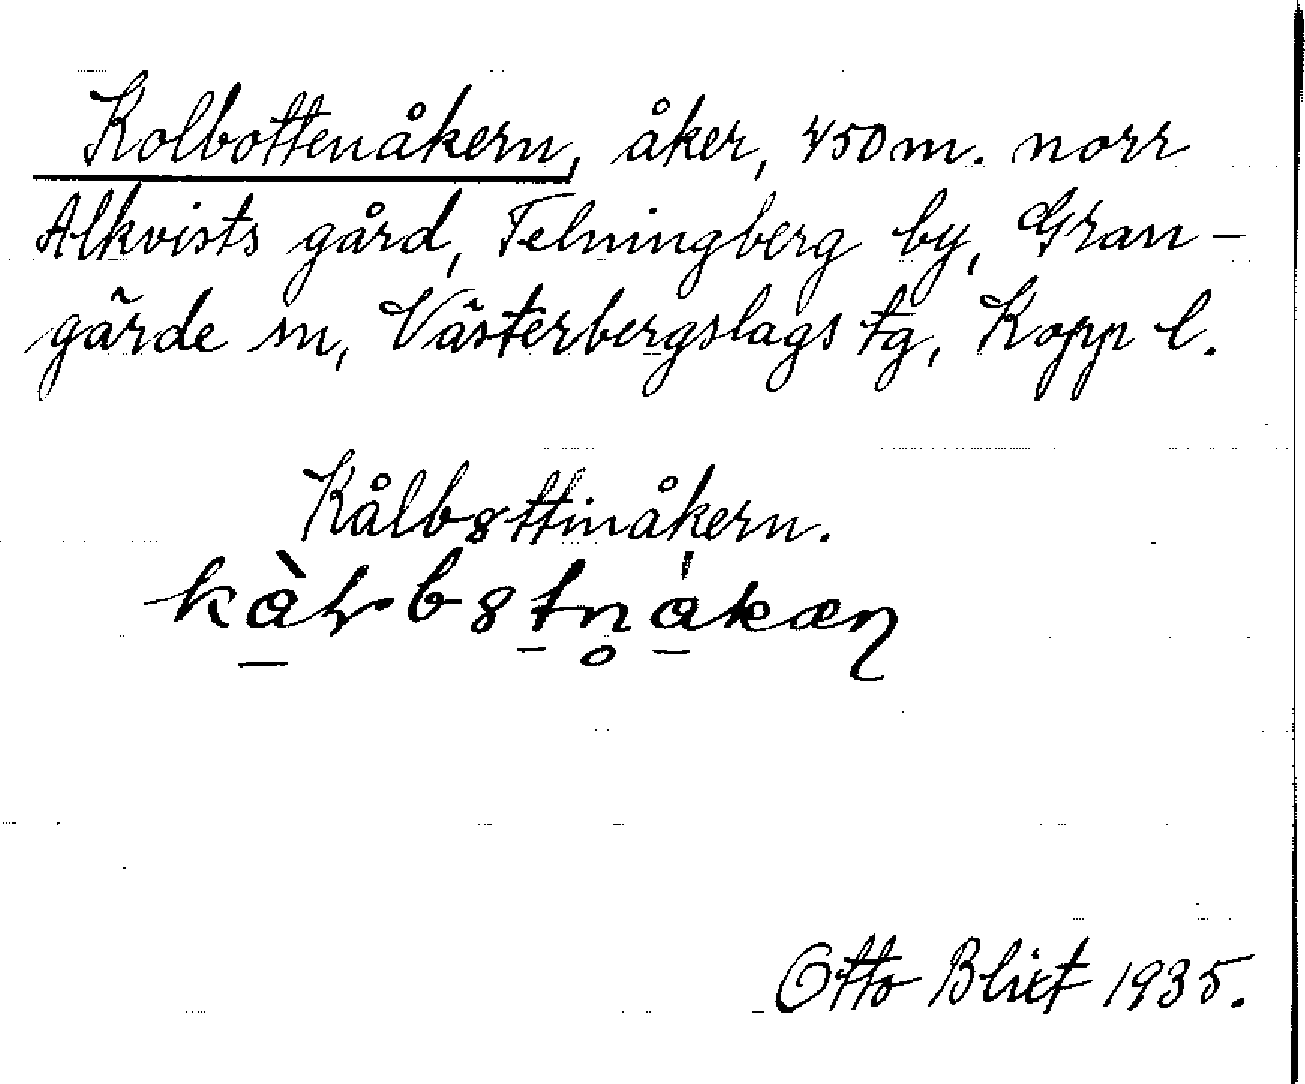 Kolbottenåkern, åker, 450 m. norr
Alkvists gård, Telningberg by, Gran-
gärde sn, Västerbergslags tg, Kopp l.
Kålbȣttinåkern.
kàɽbȣtn̥åkæɳ
Otto Blixt 1935.